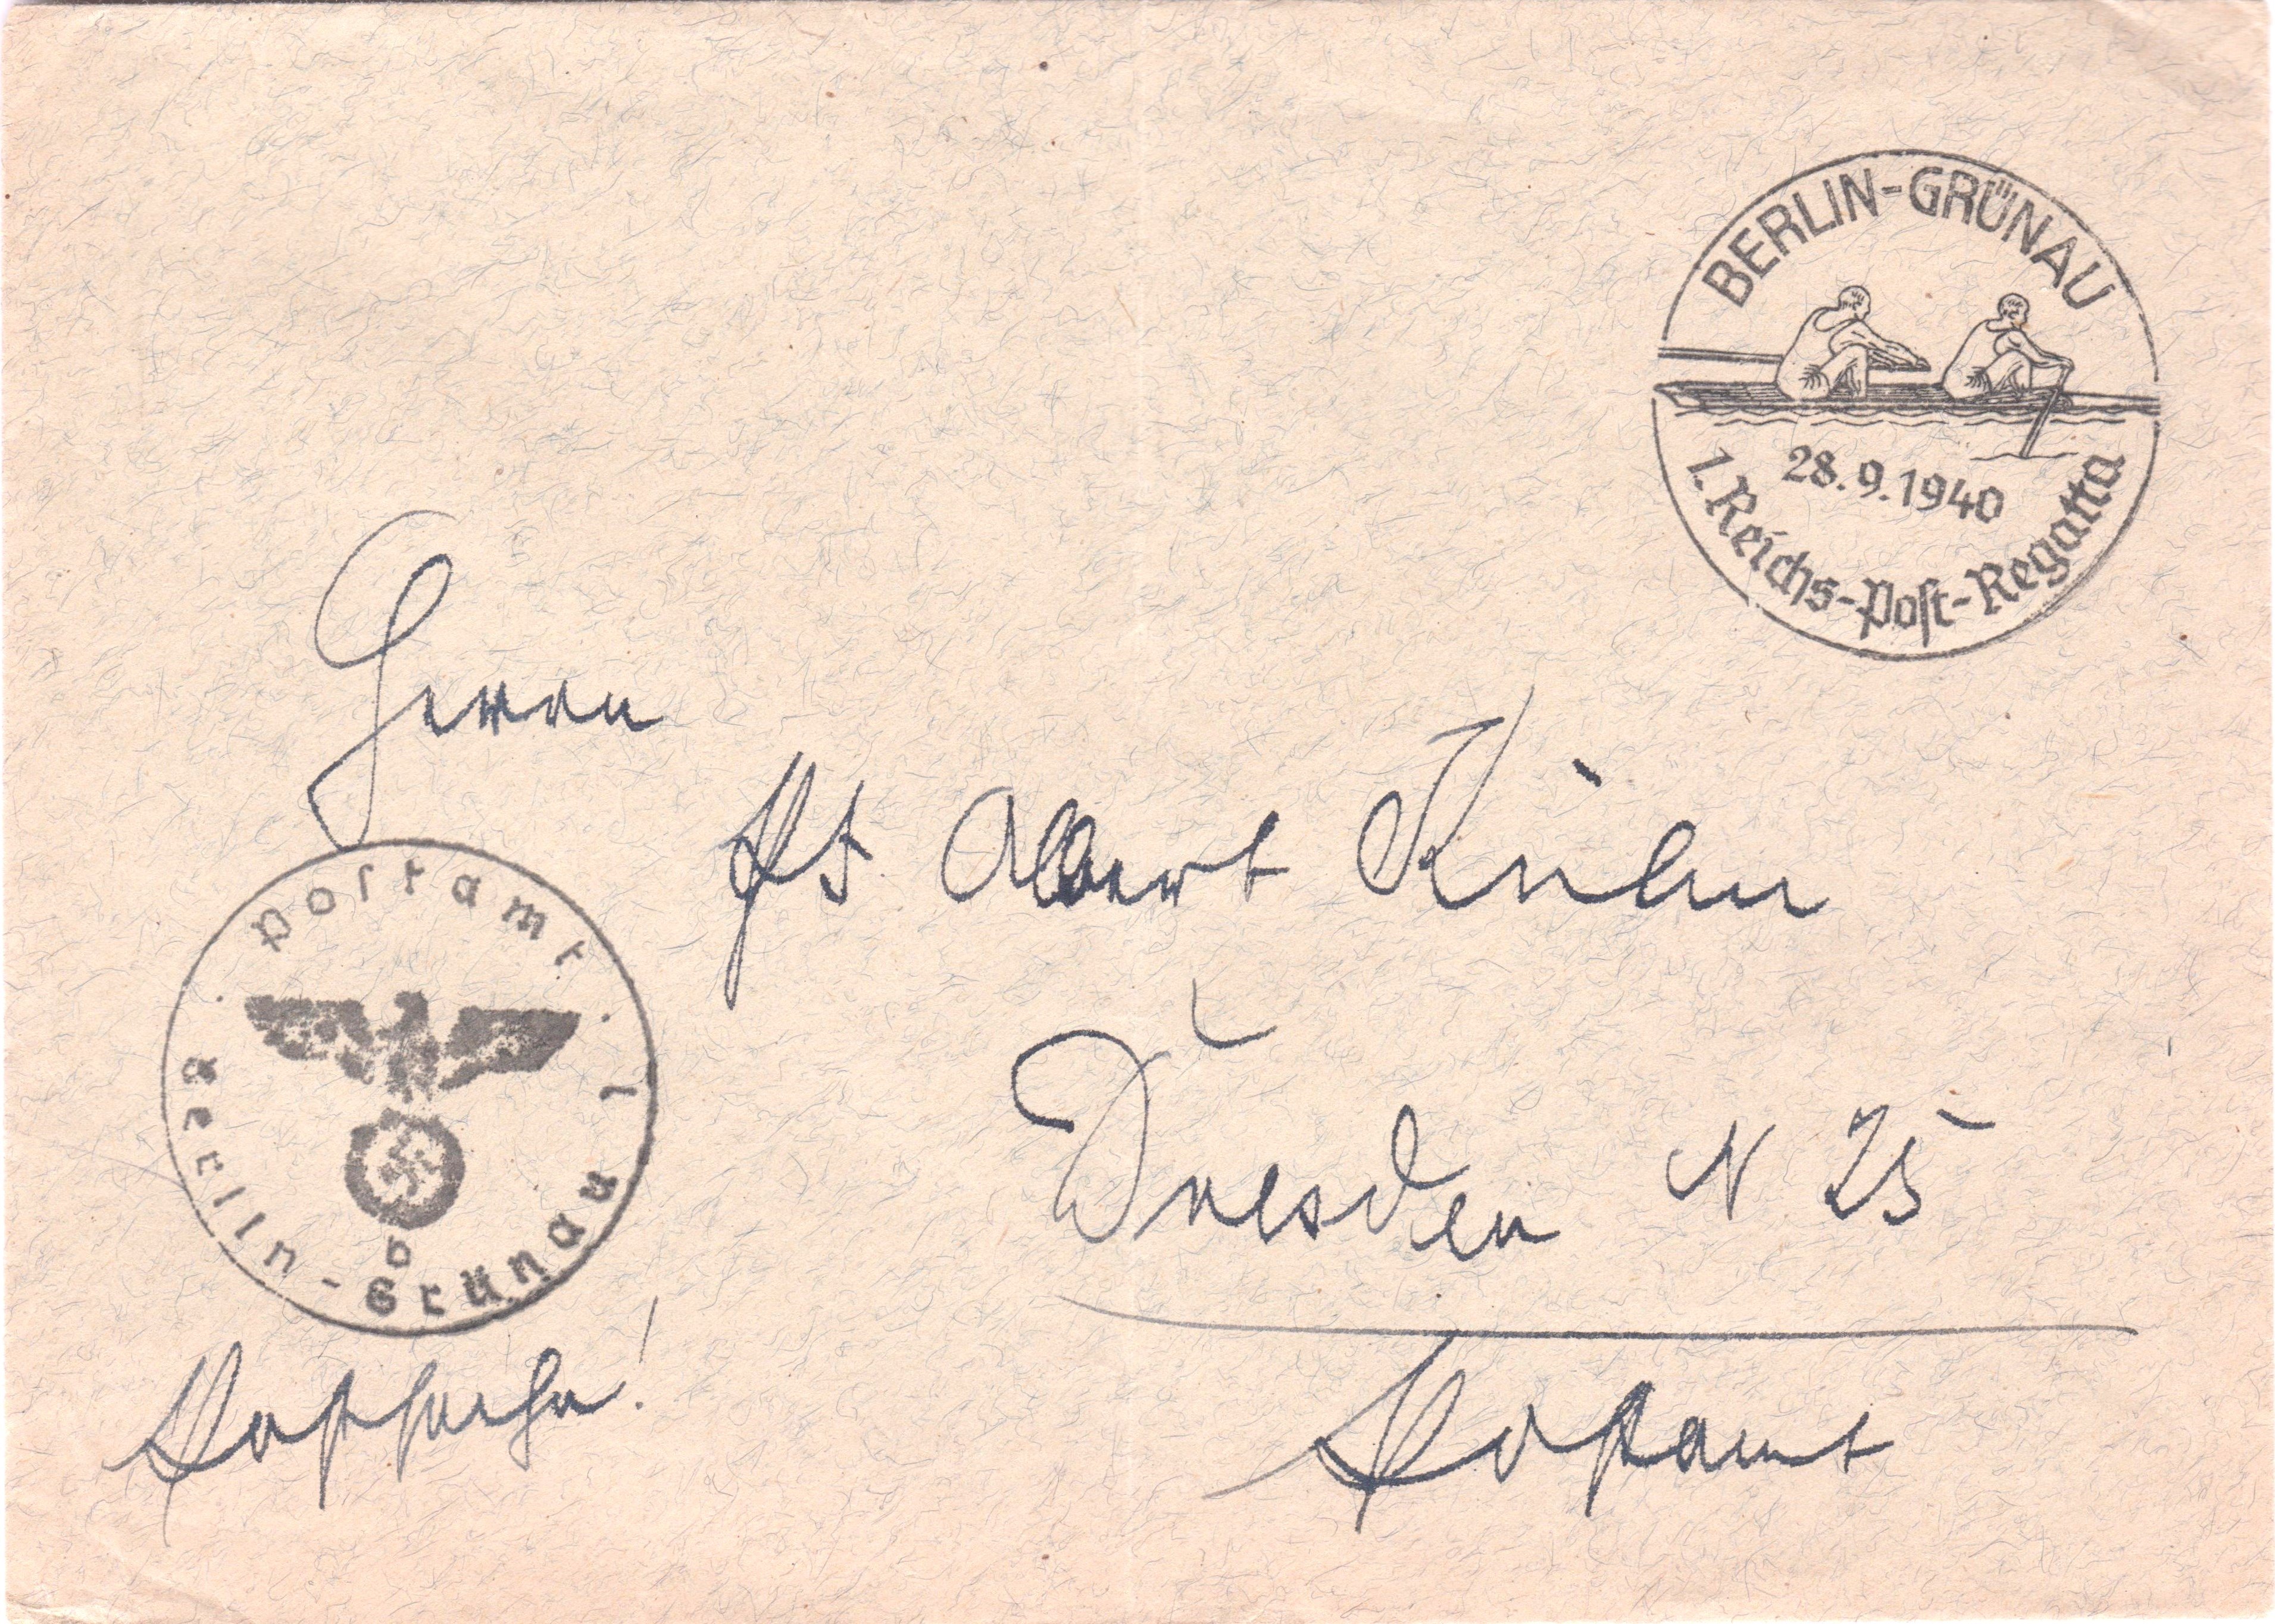 BERLIN-GRÜNAU
28.9.1940
1. Reichs-Post-Regatta
Herrn
Albert Kühn
Dresden N 25
Postamt
Postamt
Berlin-Grünau 1
b
Postsache!